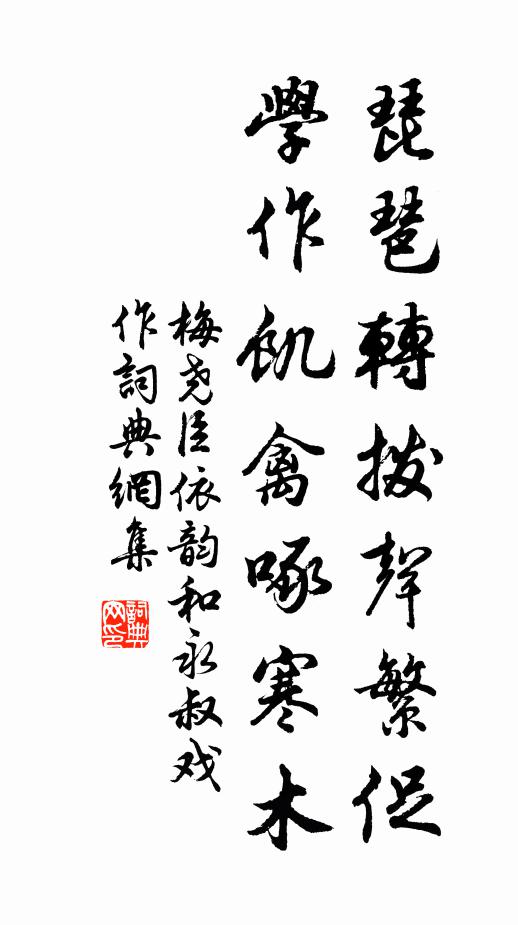 琵琶轉拨聲繁促
學作飢禽啄寒木
梅尧臣依韵和永叔戏
作詞典網集
詞典网印